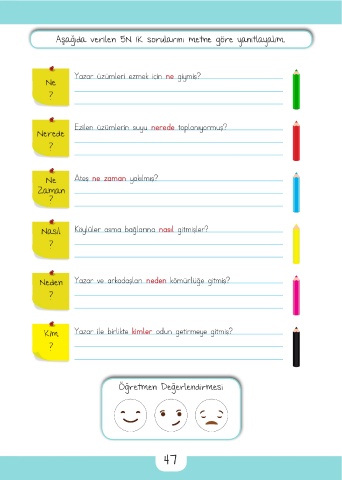 Aşağıda verilen 5N 1K sorularını metne göre yanıtlayalım.
Ne
?
Yazar üzümleri ezmek için ne giymiş?
Nerede
?
Ezilen üzümlerin suyu nerede toplanıyormuş?
Ne
Zaman
?
Ateş ne zaman yakılmış?
Nasıl
?
Köylüler asma bağlarına nasıl gitmişler?
Neden
?
Yazar ve arkadaşları neden kömürlüğe gitmiş?
Kim
?
Yazar ile birlikte kimler odun getirmeye gitmiş?
Öğretmen Değerlendirmesi
47